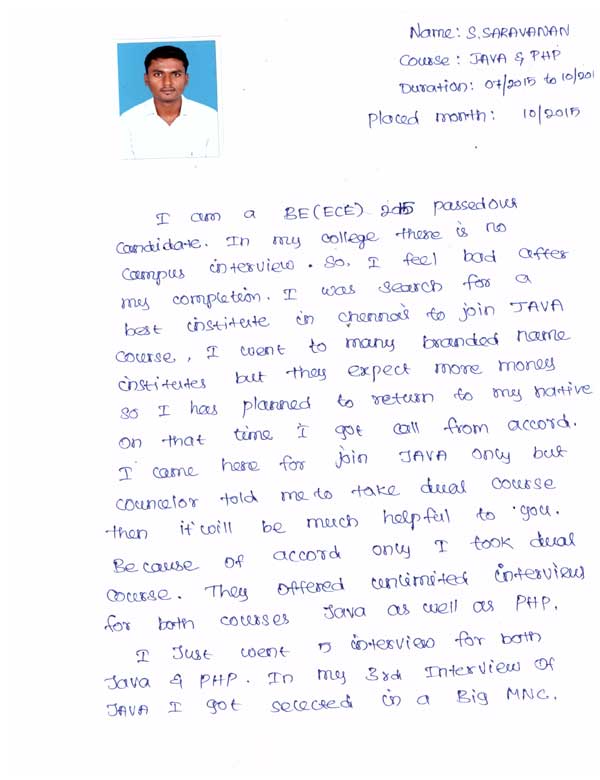 Name: S.SARAVANAN
Course: JAVA & PHP
Duration: 07/2015 to 10/201
Placed month: 10/2015
I am a BE(ECE) 2015 passedout
candidate. In my college there is no
campus interview. So, I feel bad after
my completion. I was search for a
best institute in chennai to join JAVA
course., I went to many branded name
institutes but they expect more money
so I has planned to return to my native
on that time I got call from accord.
I came here for join JAVA only but
councelor told me to take dual course
then it will be much helpful to you.
Because of accord only I took dual
course. They offered unlimited interview
for both courses Java as well as PHP.
I Just went 5 interview for both
Java & PHP. In my 3rd Interview of
JAVA I got selected in a Big MNC.